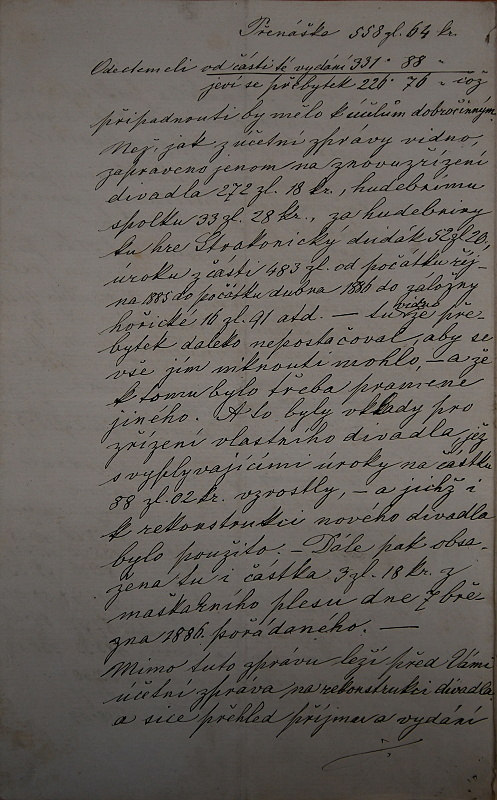 Přenáška 558 zl. 64 kr.
Odectemeli od části té vydání 331 " 88 "
jeví se přebytek 226 " 76 " což
připadnouti by mělo k účelům dobročinným.
Než, jak z účetní zprávy vidno,
zapraveno jenom na znovuzřízení
divadla 272 zl. 18 kr., hudebnímu
spolku 33 zl. 28 kr., za hudebniny
ku hre Strakonický dudák 52 zl. 20,
úroku z části 483 zl. od počátku říj-
na 1885 do počátku dubna 1886 do záložny
hořické 16 zl. 41 atd. — tu vidno že pře-
bytek daleko nepostačoval, aby se
vše jím niknouti mohlo, — a že
k tomu bylo třeba pramene
jiného. A to byly vklady pro
zřízení vlastního divadla, jež
s vyplývajícími úroky na částku
88 zl. 02 kr. vzrostly, — a jichž i
k rekonstrukci nového divadla
bylo použito. — Dále pak obsa-
žena tu i částka 3 zl. 18 kr. z
maškarního plesu dne 7 bře-
zna 1886 pořádaného. —
Mimo tuto zprávu leží před Vámi
účetní zpráva na rekonstrukci divadla
a sice přehled příjmu a vydání